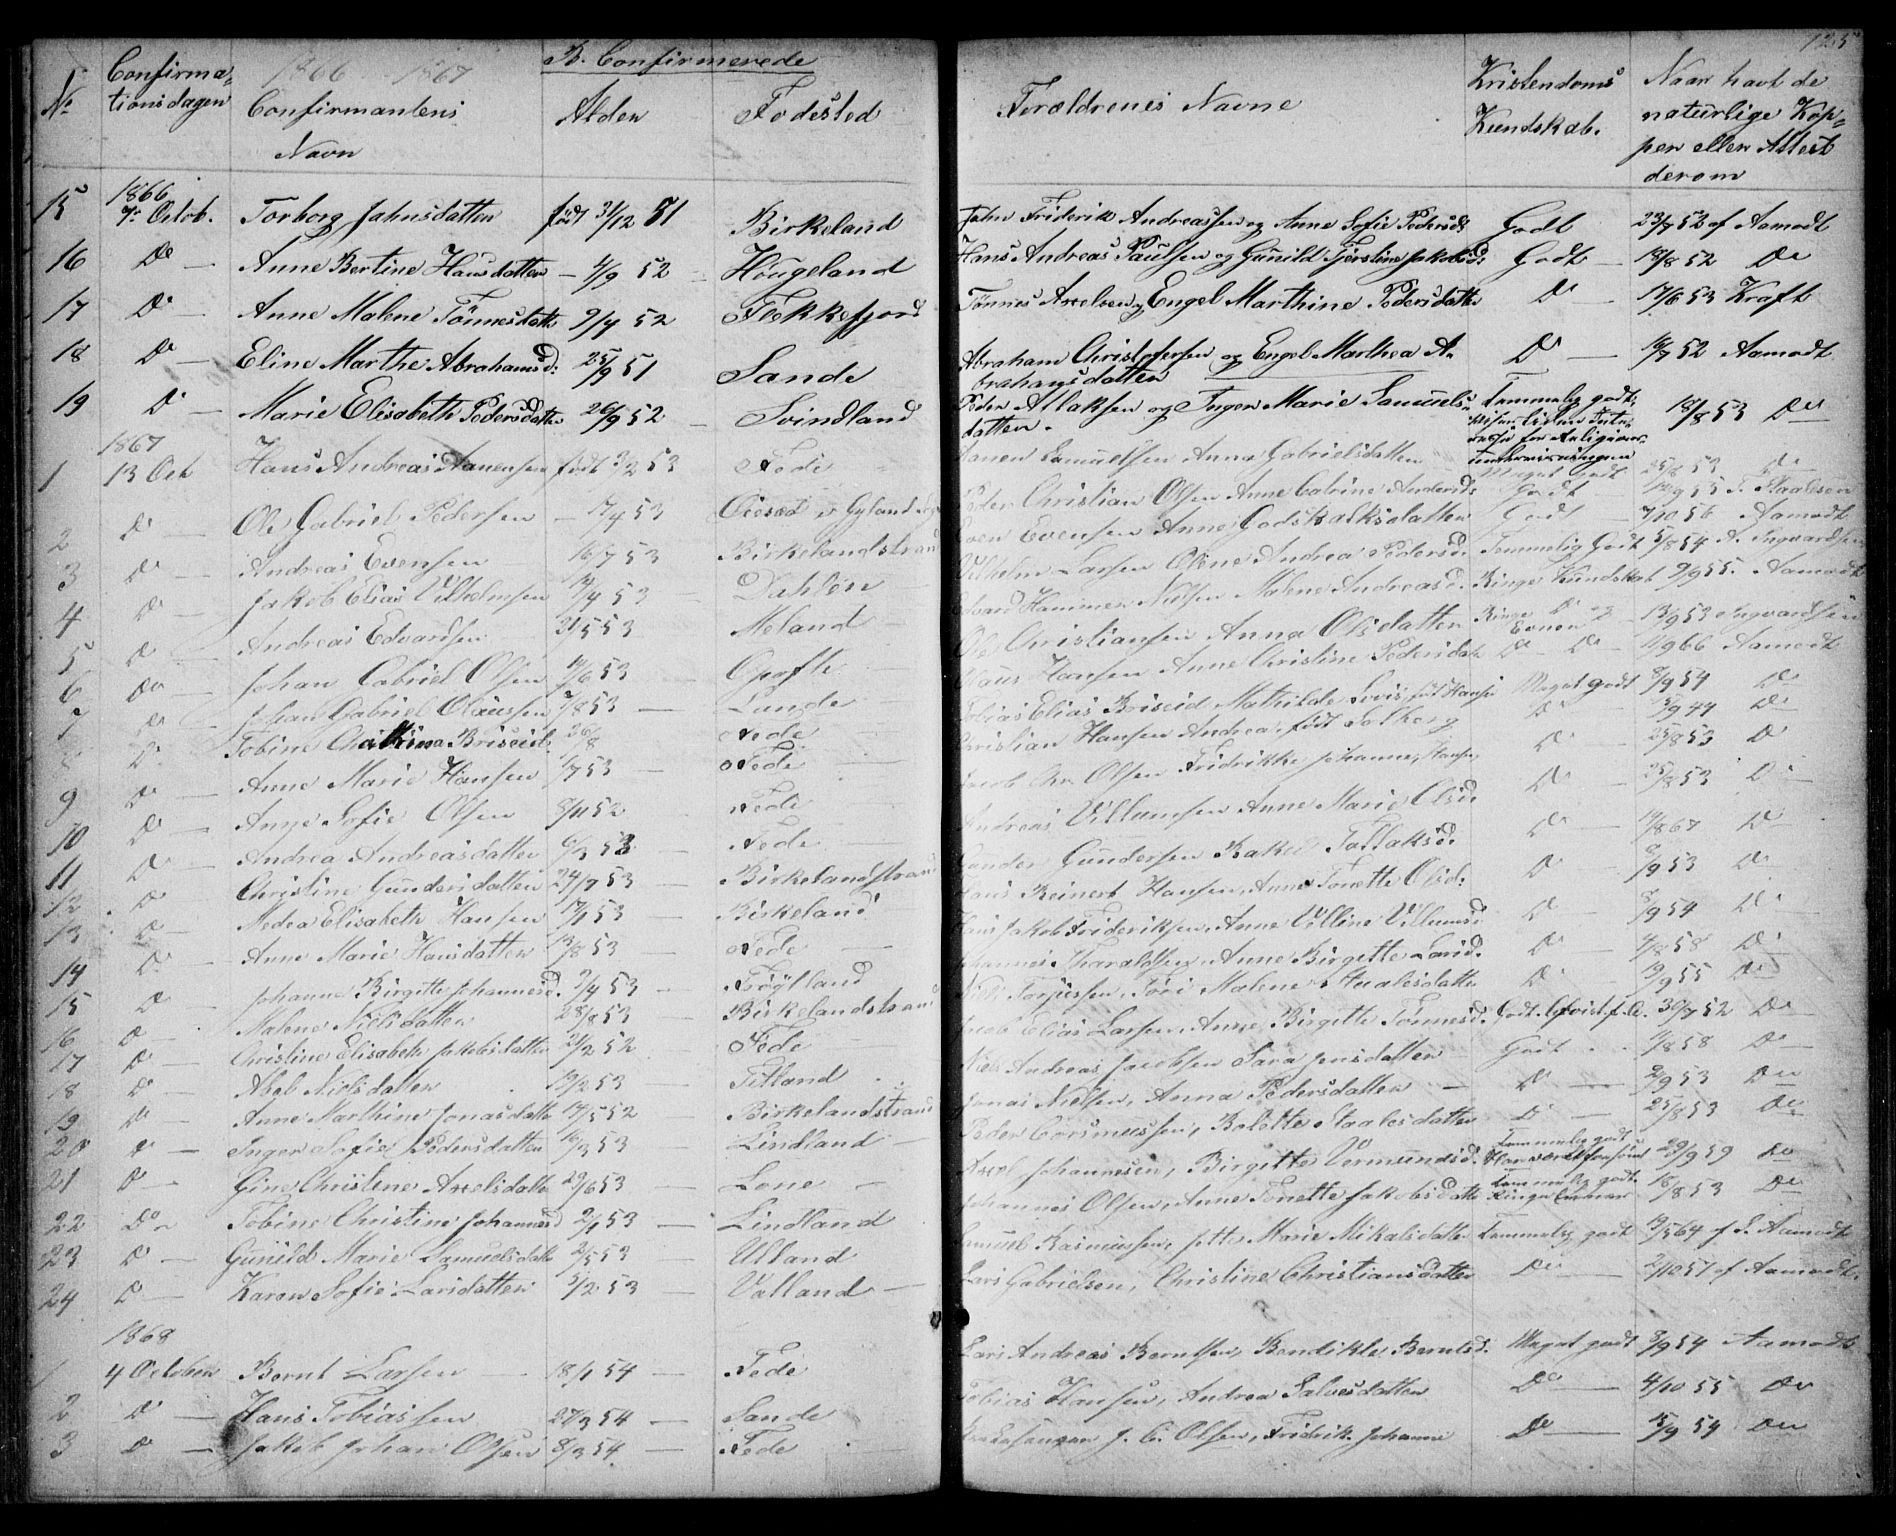 125
B. Confirmerede
1866 1867
No Confirmationsdagen Confirmantens Navn Alder Fodested Forældrenes Navne Kristendoms Kundskab. Naar havt de naturlige Kopper eller Attest derom
1866
15 7de Octob. Torborg Jahnsdatter født 31/12 51 Birkeland Jahn Friderik Andreassen og Anne Sofie Pedersd: Godt 23/7 52 af Aamodt
16 Do — Anne Bertine Hansdatter — 4/9 52 Høugeland Hans Andreas Paulsen og Gunild Tjerstine Jakobsd: Godt — 18/8 52 Do
17 Do — Anne Malene Tønnesdatter 9/4 52 Flekkefjord Tønnes Axelsen og Engel Marthine Pedersdatter Do — 17/6 53 Kraft
18 Do — Eline Marthe Abrahamsd: 25/9 51 Sande Abraham Christofersen og Engel Marthea A-
brahamsdatter Do — 16/7 52 Aamodt
19 Do — Marie Elisabeth Pedersdatter 26/9 52 — Svindland Peder Atlaksen og Inger Marie Samuels-
datter. Temmelig godt, viser liden Interesse for Religionsundervisningen 18/8 53 Do
1867
1 13 Oct Hans Andreas Aanensen født 3/2 53 Fede Aanen Samuelsen Anna Gabrielsdatter Meget godt 25/8 53 Do
2 Do — Ole Gabriel Pedersen — 17/4 53 Peder Christian Olsen Anne Catrine Andersd: Godt T. Staalesen
3 Do — Andreas Evensen 16/7 53 Birkelandstrand Even Evensen Anne Godskalksdatter Godt — 7/10 56 Aamodt
4 Do — Jakob Elias Vilhelmsen 14/4 53 — Dahlen Vilhelm Larsen Oline Andrea Pedersd. Temmelig Godt 5/8 54 A. Ingvardsen
5 Do — Andreas Edvardsen 21/5 53 Meland Edvard Hammer Nielsen Malene Andreasd. Ringe Kundskab 9/9 55. Aamodt
6 Do — Johan Gabriel Olsen 11/6 53 Opofte Ole Christiansen Anna Olsdatter Ringe Do og Evner — 13/9 53 Ingvardsen
7 Do — Johan Gabriel Olaussen 7/8 53 — Lunde Olaus Hansen Anne Christine Pedersdatter Do — Do — 11/9 66 Aamodt
8 Do Tobine Briseid 26/8 Fede Tobias Elias Briseid Mathilde Lovis, født Hansen Meget godt 8/9 54 Do
9 Do — Anne Marie Hansen 1/7 53 — Fede Christian Hansen Andrea, født Solberg Do — 13/9 44 Do
10 Do — Anne Sofie Olsen 8/11 52 Fede Jacob Chr. Olsen Fridrikke Johanne Hansen Do — 25/8 53 Do
11 Do — Andrea Andreasdatter 6/3 53 Fede Andreas Villumsen Anne Marie Olsd. Do — 25/8 53 Do
12 Do Christine Gundersdatter 24/7 53 — Birkelandstrand Gunder Gundersen Rakel Tallaksd: Do — 14/8 67 Do
13 Do — Medea Elisabeth Hansen 17/1 53 — Birkeland Hans Reinert Hansen, Anne Tonette Olsd: Do — 8/9 53 Do
14 Do Anne Marie Hansdatter 13/8 53 — Fede Hans Jakob Frideriksen, Anne Villine Villumsd. Do — 8/9 54 Do
15 Do — Johanne Birgitte Johannesd. 9/4 53 — Johannes Tharaldsen Anne Birgitte Larsd. Do — 4/8 58 Do
16 Do — Malene Nielsdatter 28/8 53 — Birkelandstrand Niels Torjussen, Tori Malene Staalesdatter Do — 19/9 55 Do
17 Do — Christine Elisabeth Jakobsdatter 24/2 52 Fede Jacob Elias Larsen, Anne Birgitte Tønnesd. Godt. 30/7 52 Do
18 Do — Abel Nielsdatter 19/2 53 Fitland Niels Andreas Jacobsen Sara Jensdatter — Godt 11/8 58 Do
19 Do — Anne Marthine Jonasdatter 17/5 52 Birkelandstrand Jonas Nielsen, Anna Pedersdatter — Do — 2/9 53 Do
20 Do — Inger Sofie Pedersdatter 16/3 53 Lindland — Peder Corsmussen, Bolette Staalesdatter Do — 25/8 53 Do
21 Do — Gine Christine Axelsdatter 29/6 53 — Lone — Axel Johannesen, Birgitte Vermundsd. Temmelig godt 29/9 59 Do
22 Do — Tobine Christine Johannesd 2/1 53 — Lindland Johannes Olsen, Anne Tonette Jakobsdatter Temmelig godt. Ringe Evner 18/8 53 Do
23 Do — Gunild Marie Samuelsdatter 2/5 53 — Ulland Samuel Rasmussen, Jette Marie Mikalsdatter Temmelig godt 13/5 64 af S. Aamodt
24 Do — Karen Sofie Larsdatter 5/2 53 — Valland — Lars Gabrielsen, Christine Christiansdatter Do — 2/10 57 af Aamodt.
1868
1 4 October Bernt Larsen — 18/1 54 — Fede Lars Andreas Berntsen, Bendikte Berntsd. Meget godt 8/9 54 Aamodt
2 Do — Hans Tobiassen 27/3 54 — Sande Tobias Hansen, Andrea Salvesdatter Do — 4/10 55 Do
3 Do — Jakob Johan Olsen 8/3 54 — Fede J. C. Olsen, Fridrik. Johanne Do — 15/9 54 Do